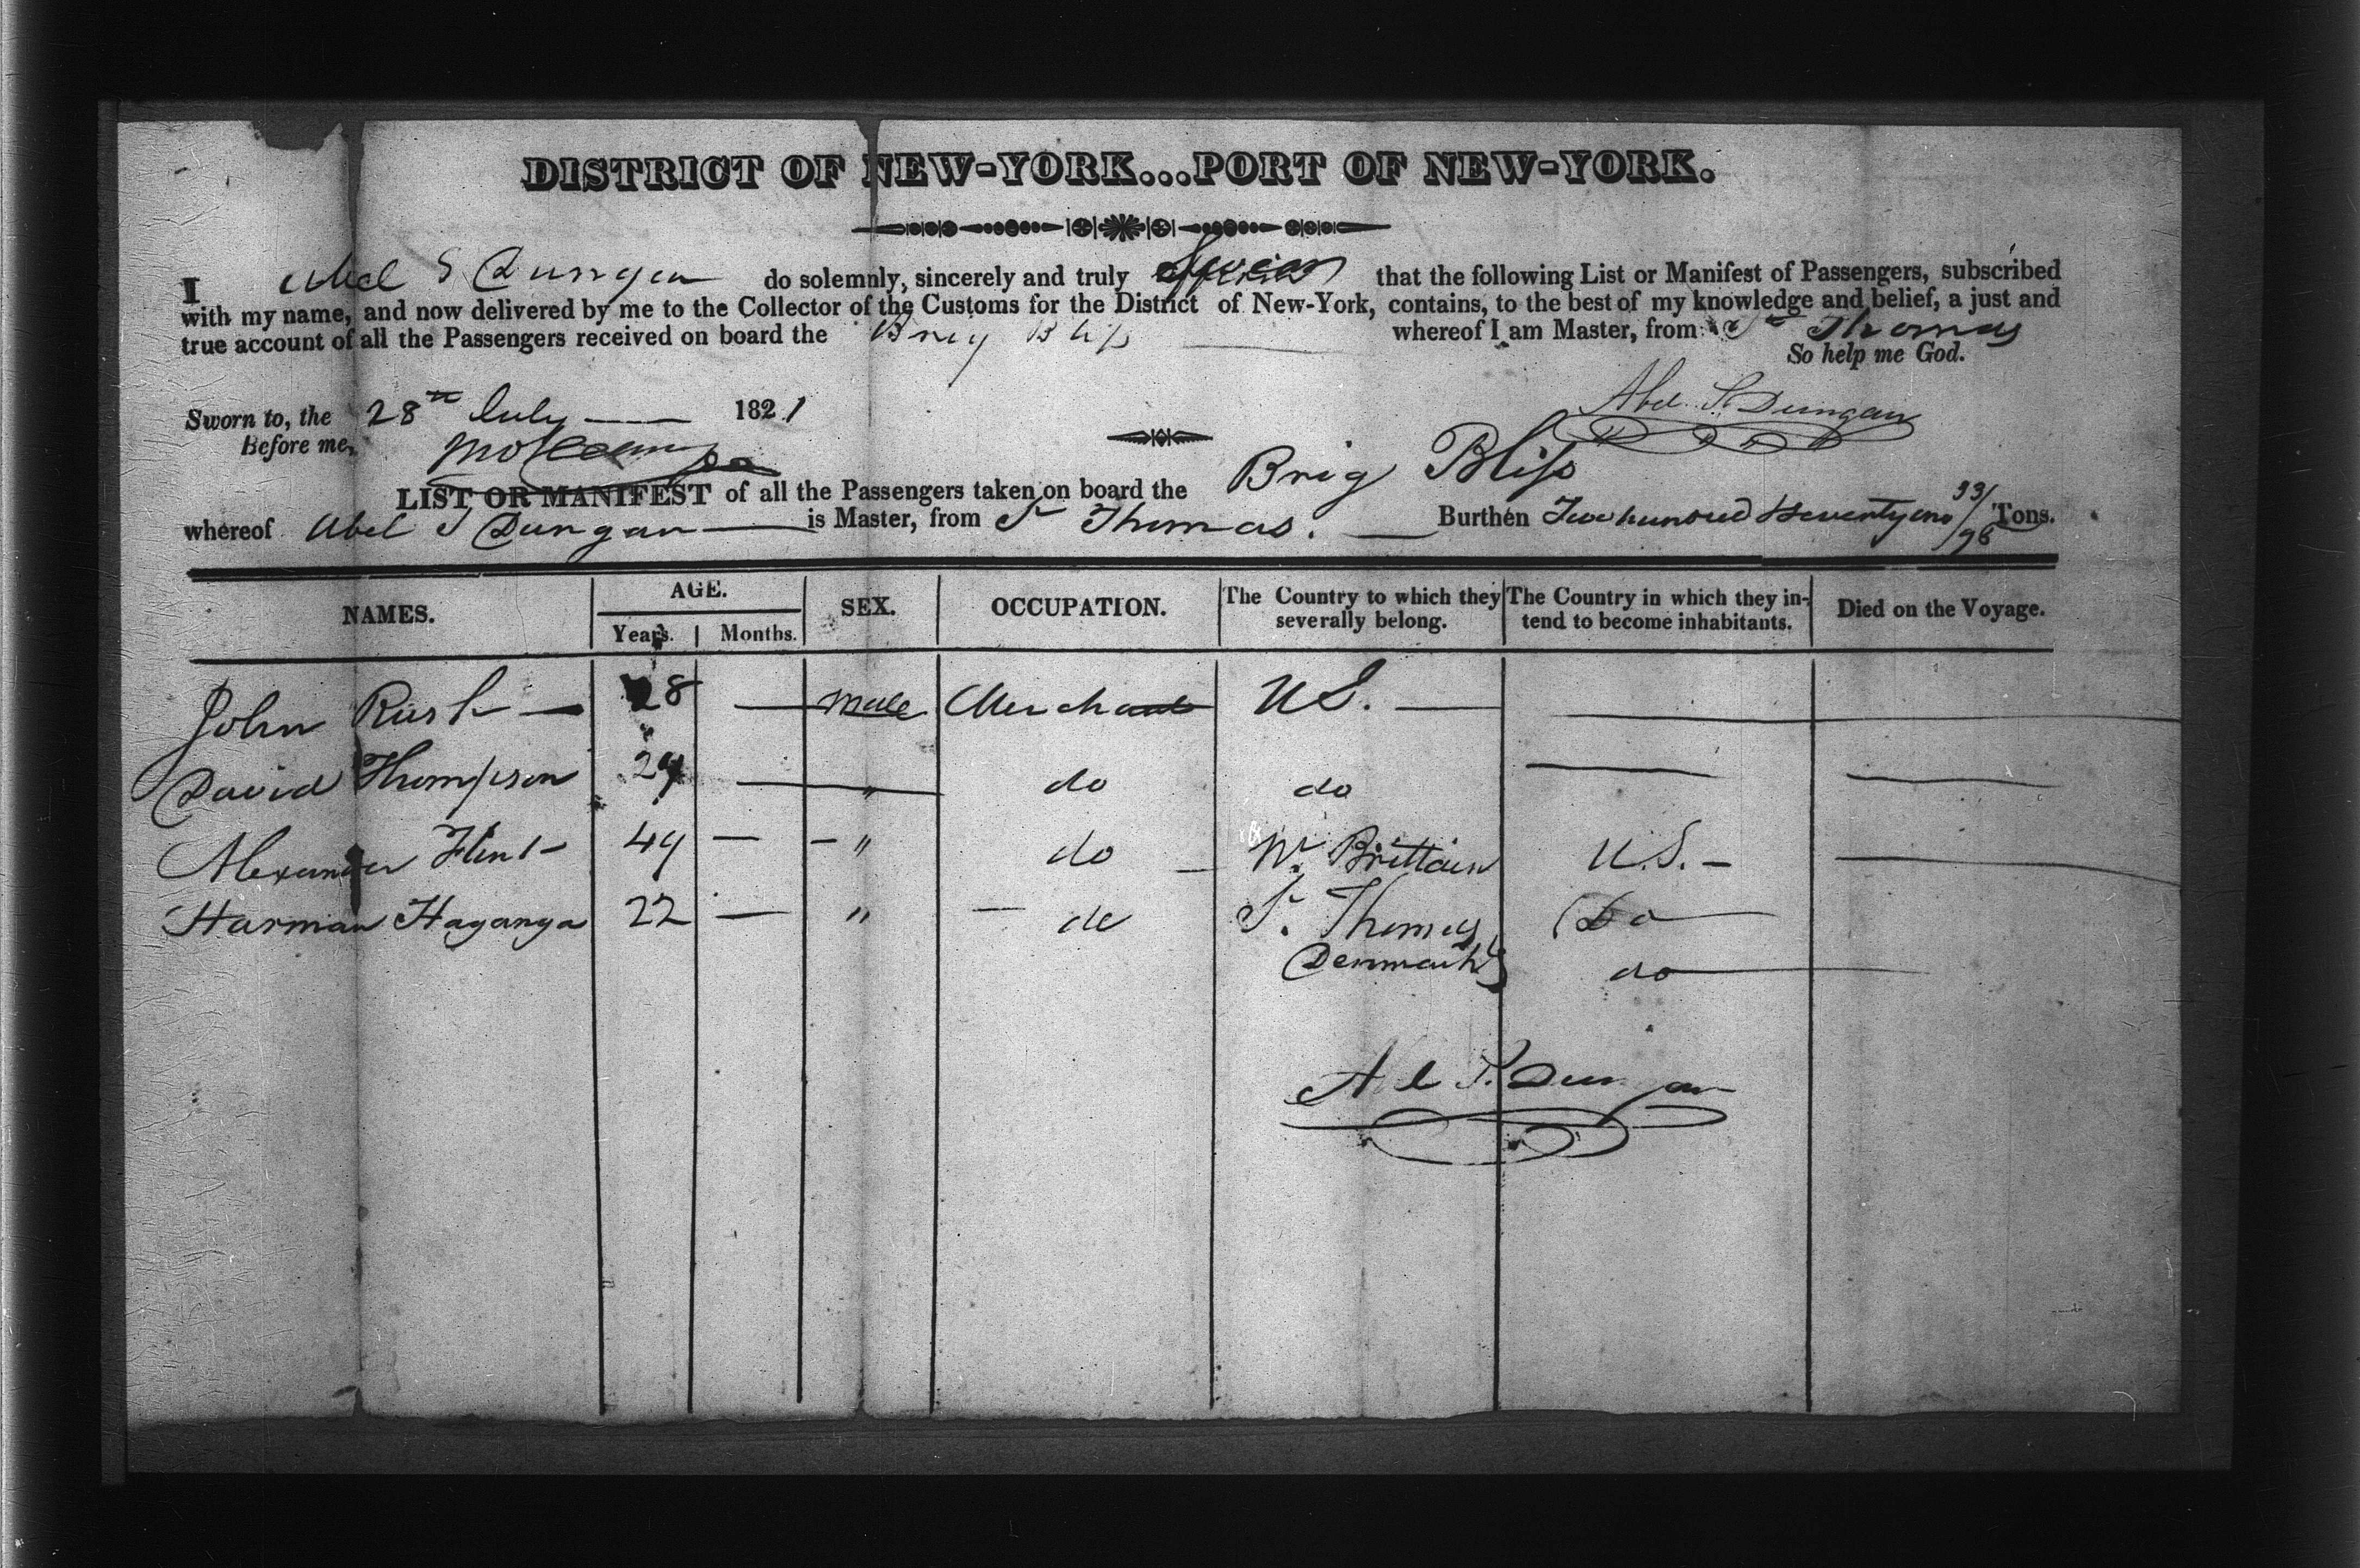 DISTRICT OF NEW-YORK...PORT OF NEW-YORK.
I Abel S Dungan do solemnly, sincerely and truly Swear that the following List or Manifest of Passengers, subscribed
with my name, and now delivered by me to the Collector of the Customs for the District of New-York, contains, to the best of my knowledge and belief, a just and
true account of all the Passengers received on board the Brig Bliss whereof I am Master, from St Thomas
So help me God.
Sworn to, the 28th July 1821
Abel S. Dungan
Before me,
LIST OR MANIFEST of all the Passengers taken on board the Brig Bliss
whereof Abel S Dungan is Master, from St Thomas. Burthen Two hundred & seventy one 33/95 Tons.
NAMES. AGE. Years. Months. SEX. OCCUPATION. The Country to which they severally belong. The Country in which they intend to become inhabitants. Died on the Voyage.
John Rush — 28 — male Merchant U S. —
David Thompson 29 — " do do —
Alexander Flint 49 — - " do Brittain U.S. —
Harman Haganga 22 — " — do St. Thomas Do —
Denmark do —
A e S. Dungan